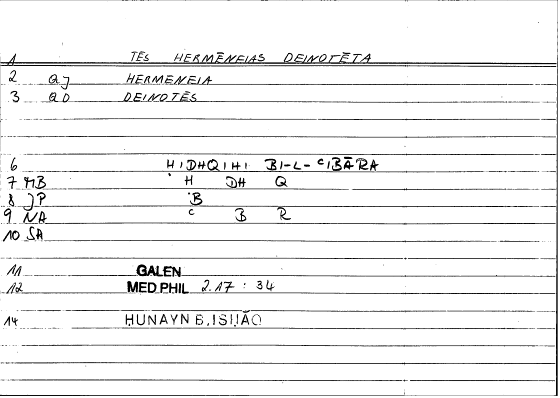 1 TĒS HERMĒNEIAS DEINOTĒTA
2 QJ HERMENEIA
3 QD DEINOTĒS
6 ḤIDHQIHI BI-L-ᶜIBĀRA
7 MB Ḥ DH Q
8 JP B
9 NA ᶜ B R
10 SA
11 GALEN
12 MED PHIL 2.17 : 34
14 ḤUNAYN B. ISḤĀQ